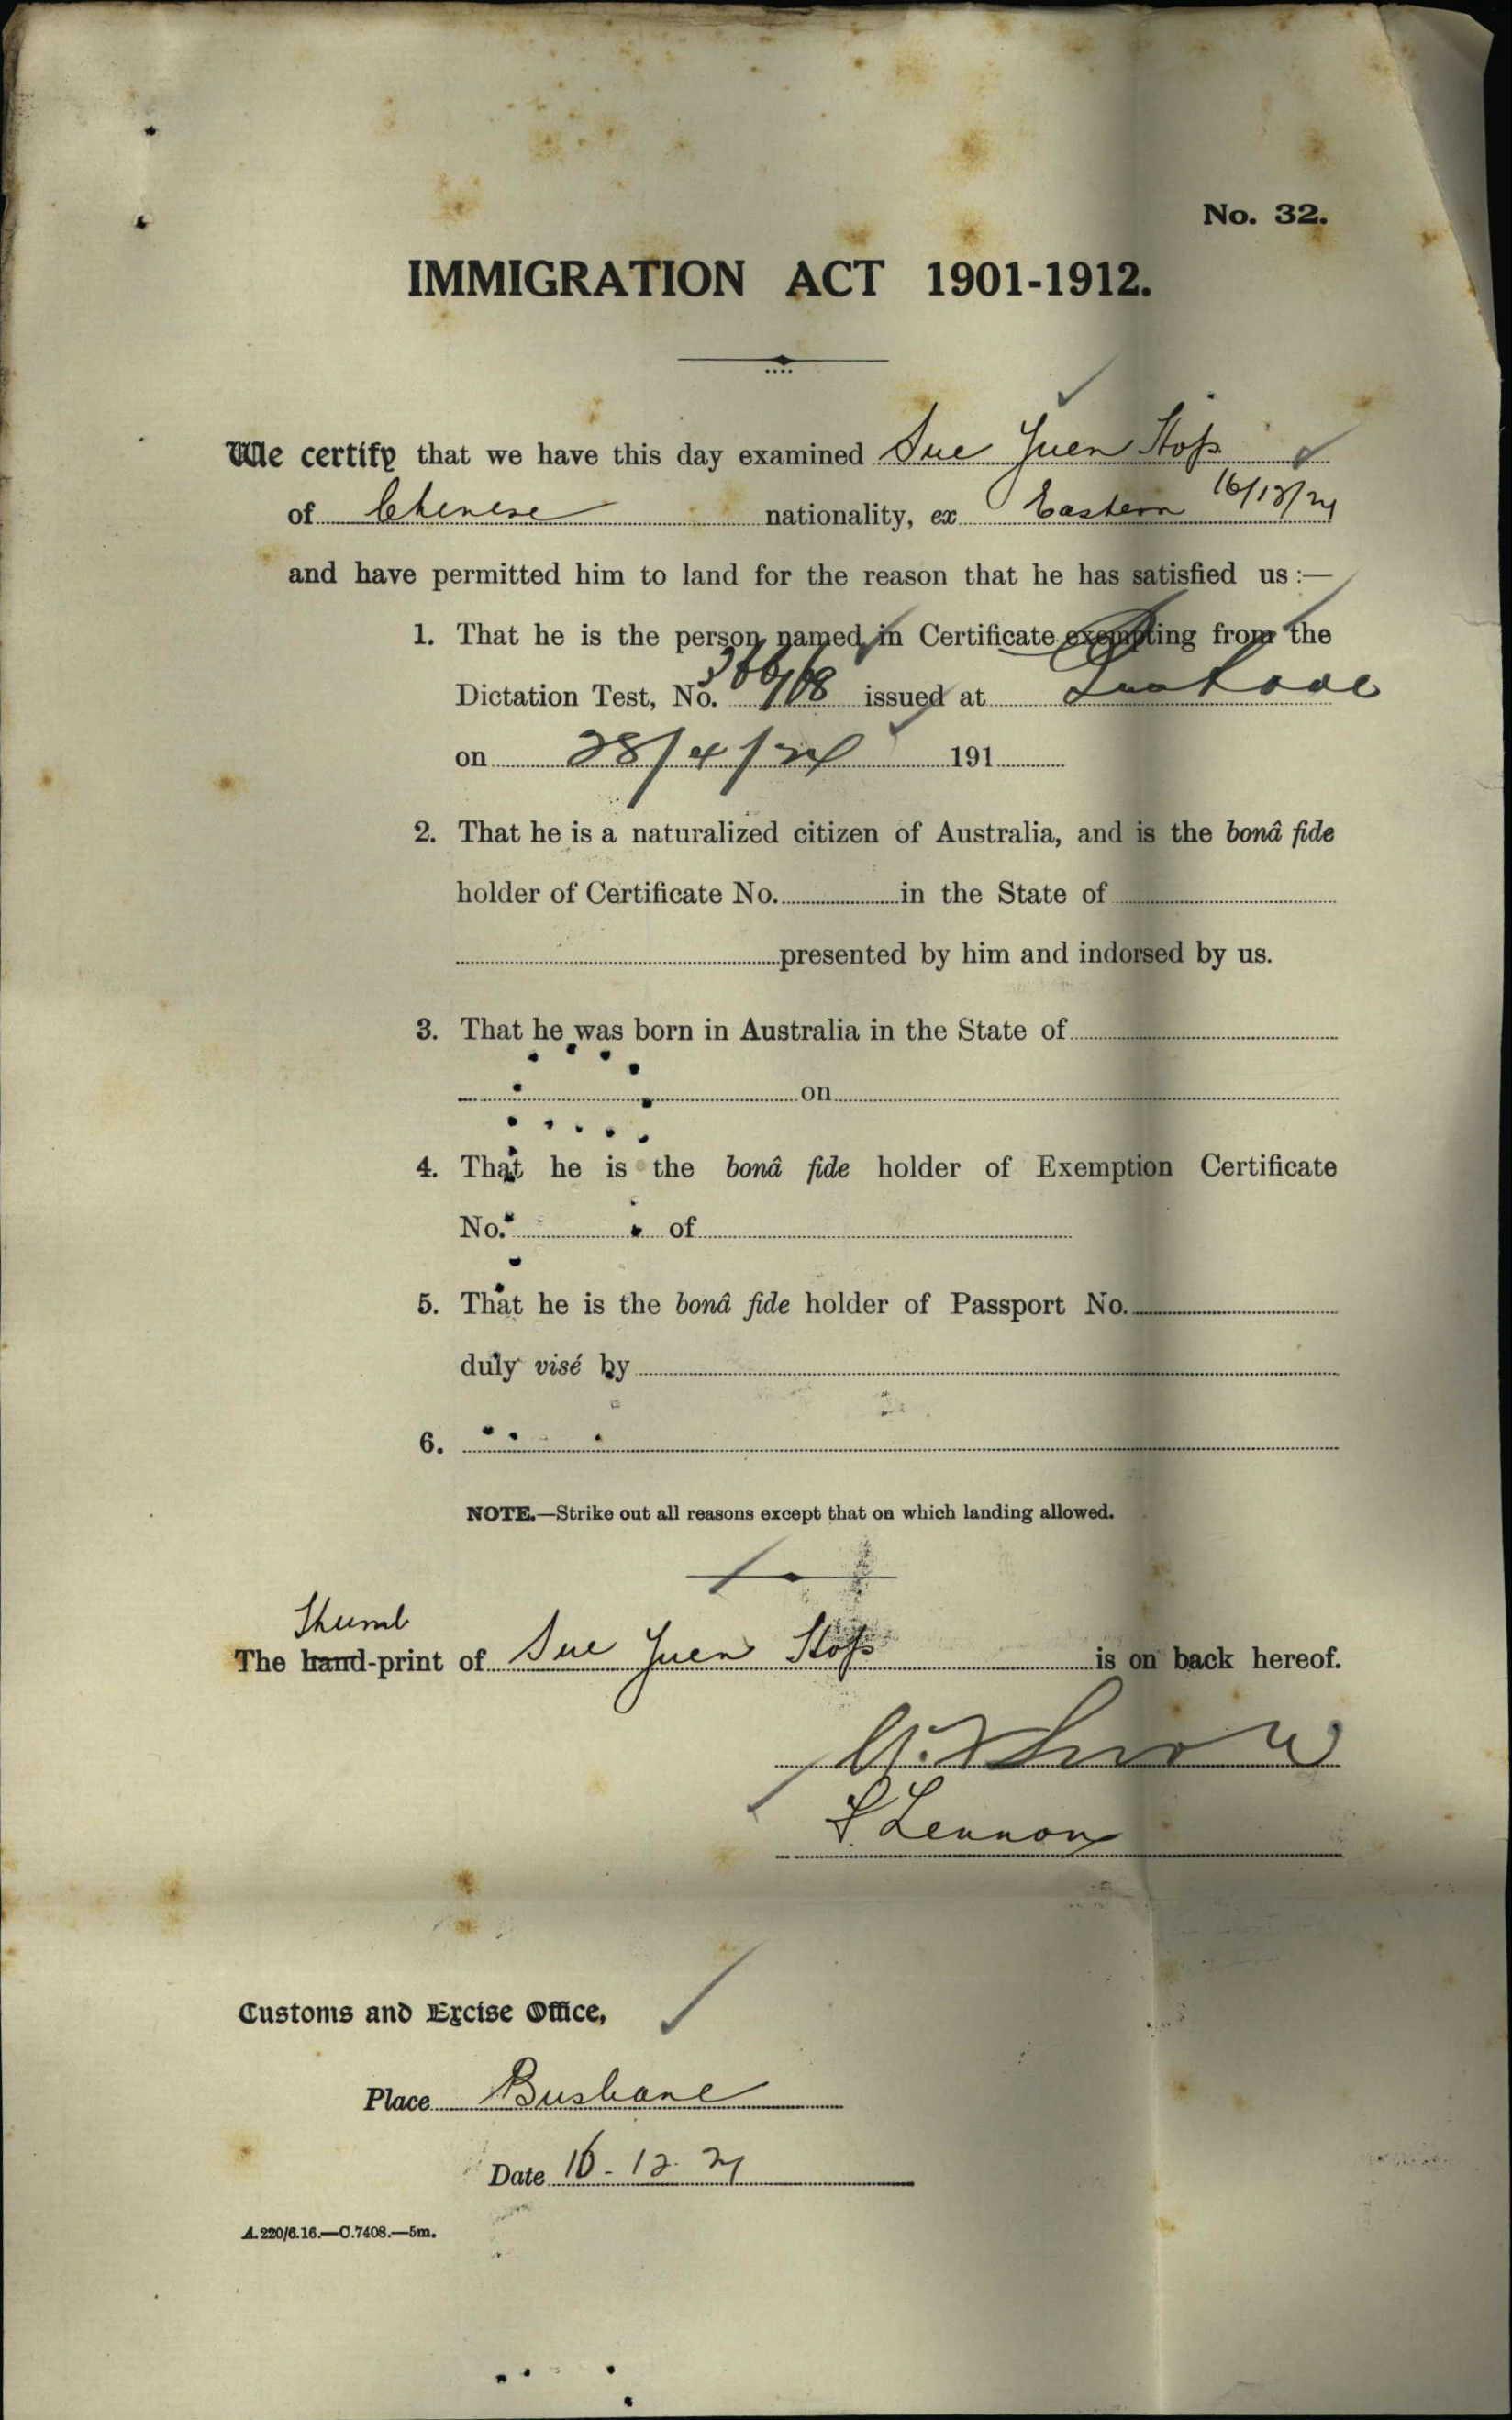 No. 32.
IMMIGRATION ACT 1901-1912.
We certify that we have this day examined Sue Yuen Hop
of Chinese nationality, ex Eastern 16/12/21
and have permitted him to land for the reason that he has satisfied us:—
1. That he is the person named in Certificate exempting from the
Dictation Test, No. issued at
on 28/4/21 191
2. That he is a naturalized citizen of Australia, and is the bonâ fide
holder of Certificate No. in the State of
presented by him and indorsed by us.
3. That he was born in Australia in the State of
on
4. That he is the bonâ fide holder of Exemption Certificate
No. of
5. That he is the bonâ fide holder of Passport No.
duly visé by
6.
NOTE.—Strike out all reasons except that on which landing allowed.
Thumb
The hand-print of Sue Yuen Hop is on back hereof.
Lennon
Customs and Excise Office,
Place Brisbane
Date 16-12-21
A.220/6.16.—C.7408.—5m.